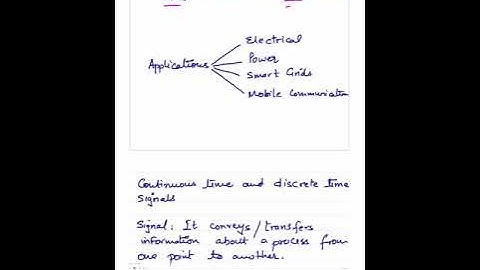 Electrical
Power
Applications
Smart Grids
Mobile Communication
Continuous time and discrete time
Signals
Signal: It conveys/transfers
information about a process from
one point to another.